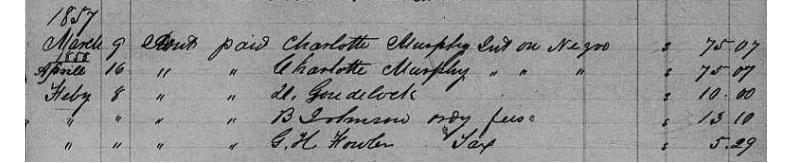 1857
March 9 Amt paid Charlotte Murphy Int on Negro $ 75.07
1858
Aprile 16 " " Charlotte Murphy " " " $ 75.07
Feby 8 " " D. Goudelock $ 10.00
" " " " B Johnson ordy fees $ 13.10
" " " " G. H. Fowler Tax $ 5.29